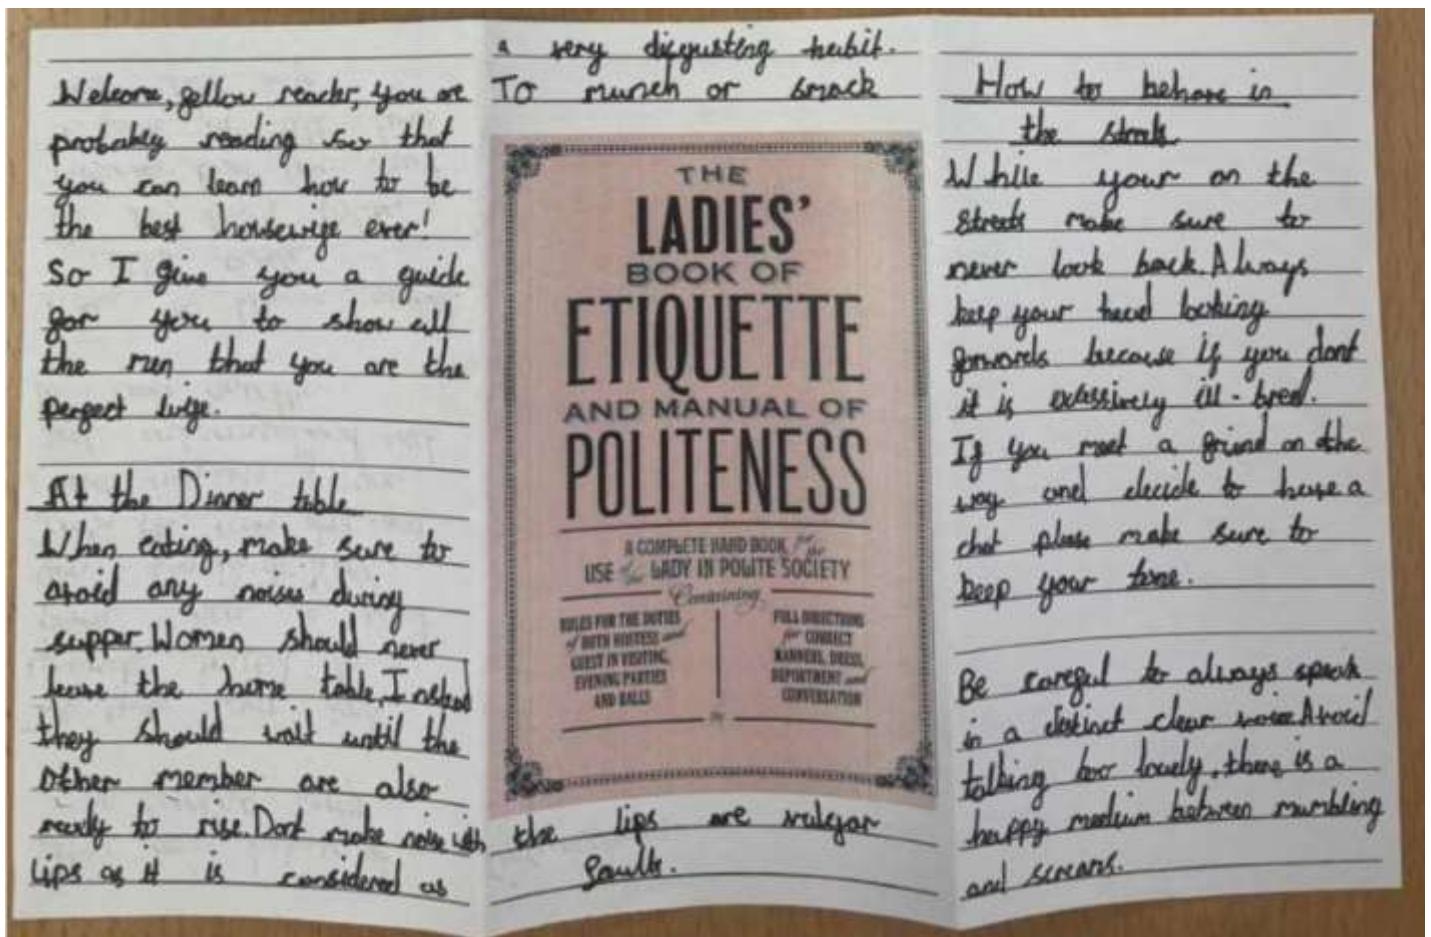 Welcome, fellow reader, you are
probably reading so that
you can learn how to be
the best housewife ever!
So I give you a guide
for you to show all
the men that you are the
perfect wife.
At the Dinner table
When eating, make sure to
avoid any noises during
supper. Women should never
leave the home table, Instead
they should wait until the
other member are also
ready to rise. Dont make noise with
lips as it is considered as
a very disgusting habit.
To munch or smack
THE
LADIES'
BOOK OF
ETIQUETTE
AND MANUAL OF
POLITENESS
A COMPLETE HAND BOOK for the
USE of the LADY IN POLITE SOCIETY
Containing
RULES FOR THE DUTIES
of BOTH HOSTESS and
GUEST IN VISITING,
EVENING PARTIES
AND BALLS
FULL DIRECTIONS
for CORRECT
MANNERS, DRESS,
DEPORTMENT and
CONVERSATION
the lips are vulgar
faults.
How to behave in
the streets
While your on the
streets make sure to
never look back. Always
keep your head looking
forwards because if you dont
it is exessively ill-bred.
If you meet a friend on the
way and decide to have a
chat please make sure to
keep your tone.
Be careful to always speak
in a distinct clear voice. Avoid
talking too louely, there is a
happy medium between mumbling
and screams.